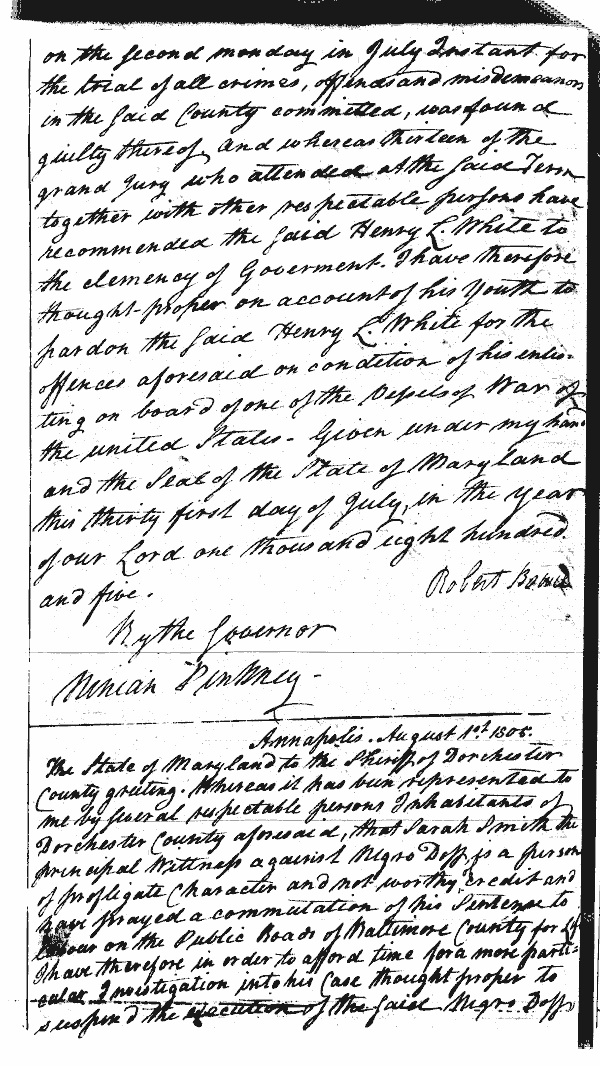 on the Second monday in July Instant for
the trial of all crimes, offends and misdemeanors
in the Said County committed, was found
guilty thereof, and whereas thirteen of the
grand Jury who attended at the Said Term
together with other respectable persons have
recommended the Said Henry L. White to
the clemency of Goverment. I have therefore
thought proper on account of his Youth to
pardon the Said Henry L. White for the
offences aforesaid on condition of his enlis-
ting on board of one of the Vessels of War of
the united States - Given under my hand
and the Seal of the State of Maryland
this thirty first day of July, in the year
of our Lord one thousand eight hundred
and five.
Robert Bowie
By the Governor
Ninian Pinkney -
Annapolis. August 1st 1805.
The State of Maryland to the Sheriff of Dorchester
County greeting. Whereas it has been represented to
me by several respectable persons Inhabitants of
Dorchester County aforesaid, that Sarah Smith the
principal Wittness against Negro Doff, is a person
of profligate Character and not worthy, credit and
have prayed a commutation of his Sentence to
labour on the Public Roads of Baltimore County for
I have therefore in order to afford time for a more parti-
cular Investigation into his Case thought proper to
suspend the execution of the Said Negro Doff